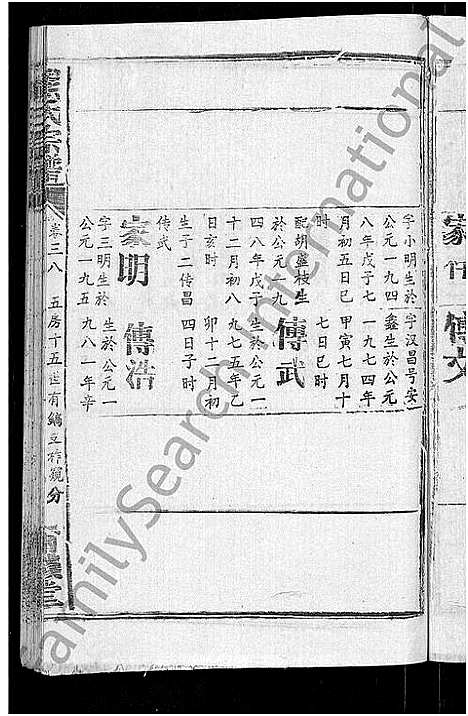 家 傳文
字小明生於 字汉昌号安
公元一九四 鑫生於公元
八年戊子七 一九七四年
月初五日巳 甲寅七月十
时 七日巳时
配胡鸾枝生
於公元一九 傳武
四八年戊子 生於公元一
十二月初八 九七五年乙
日亥时 卯十二月初
生子二传昌 四日子时
传武
家明 傳浩
字三明生於 生於公元一
公元一九五 九八一年辛
氏宗譜
卷三八 五房十五世有 分
堂
FamilySearch International